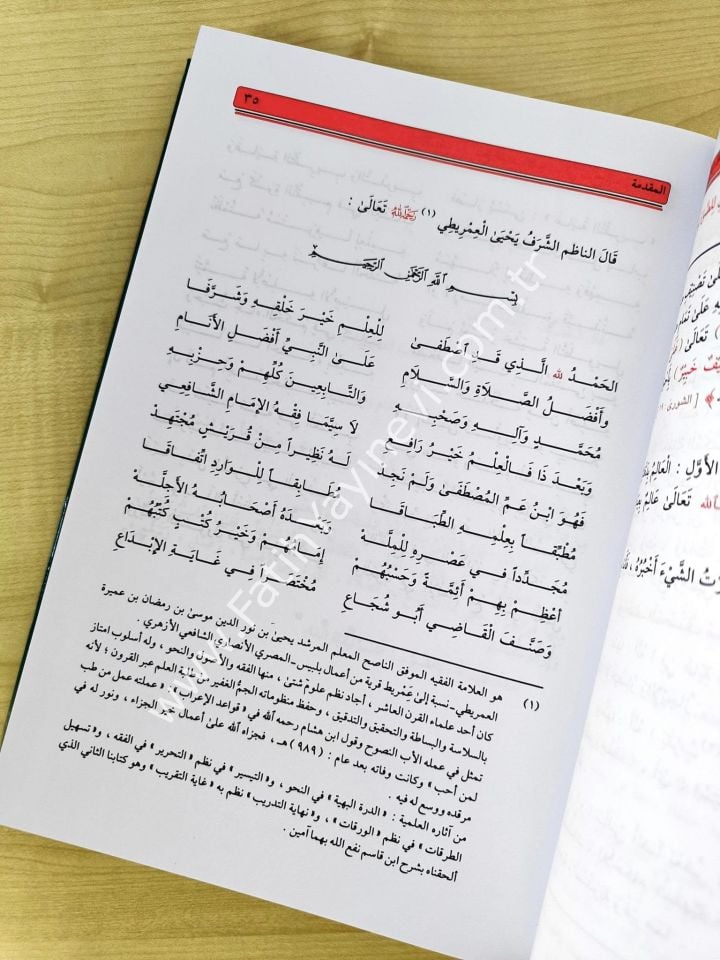 ٣٥
المقدمة
قَالَ الناظم الشَّرَفُ يَحْيَىٰ الْعِمْرِيطِي (١) رَحِمَهُ اللَّهُ تَعَالَىٰ :
بِسْمِ اللَّهِ الرَّحْمَنِ الرَّحِيمِ
الحَمْدُ لله الَّذِي قَدِ اصْطَفَىٰ لِلْعِلْمِ خَيْرَ خَلْقِهِ وَشَرَّفَا
وَأَفْضَلُ الصَّلَاةِ وَالسَّلَامِ عَلَىٰ النَّبِيِّ أَفْضَلِ الأَنَامِ
مُحَمَّدٍ وَآلِهِ وَصَحْبِهِ وَالتَّابِعِينَ كُلِّهِمْ وَحِزْبِهِ
وَبَعْدَ ذَا فَالْعِلْمُ خَيْرُ رَافِعِ لَا سِيَّمَا فِقْهُ الإِمَامِ الشَّافِعِي
فَهْوَ ابْنُ عَمِّ المُصْطَفَىٰ وَلَمْ نَجِدْ لَهُ نَظِيراً مِنْ قُرَيْشٍ مُجْتَهِدْ
مُطَبِّقاً بِعِلْمِهِ الطِّبَاقَا وَطَابِقاً لِلْوَارِدِ اتِّفَاقَا
مُجَدِّداً فِي عَصْرِهِ لِلْمِلَّهْ وَبَعْدَهُ أَصْحَابُهُ الأَجِلَّهْ
أَعْظِمْ بِهِمْ أَئِمَّةً وَحَسْبُهُمْ إِمَامُهُمْ وَخَيْرُ كُتْبٍ كُتْبُهُمْ
وَصَنَّفَ الْقَاضِي أَبُو شُجَاعِ مُخْتَصَراً فِي غَايَةِ الإِبْدَاعِ
(١) هو العلامة الفقيه الموفق الناصح المعلم المرشد يحيىٰ بن نور الدين موسىٰ بن رمضان بن عميرة
العمريطي ـ نسبة إلىٰ عَمْريط قرية من أعمال بلبيس ـ المصري الأنصاري الشافعي الأزهري .
كان أحد علماء القرن العاشر ، أجاد نظم علومٍ شتىٰ ، منها الفقه والأصول والنحو ، وله أسلوب امتاز
بالسلاسة والبساطة والتحقيق والتدقيق ، وحفظ منظوماته الجمُّ الغفير من طلبة العلم عبر القرون ؛ لأنه
تمثل في عمله الأب النصوح وقول ابن هشام رحمه الله في « قواعد الإعراب » : « عملته عمل من طب
لمن أحب » وكانت وفاته بعد عام : ( ٩٨٩ ) هـ ، فجزاه الله علىٰ أعمال خير الجزاء ، ونور له في
مرقده ووسع له فيه .
من آثاره العلمية : « الدرة البهية » في النحو ، و« التيسير » في نظم « التحرير » في الفقه ، و« تسهيل
الطرقات » في نظم « الورقات » ، و« نهاية التدريب » نظم به « غاية التقريب » وهو كتابنا الثاني الذي
ألحقناه بشرح ابن قاسم نفع الله بهما آمين .
www.FatihYayinevi.com.tr